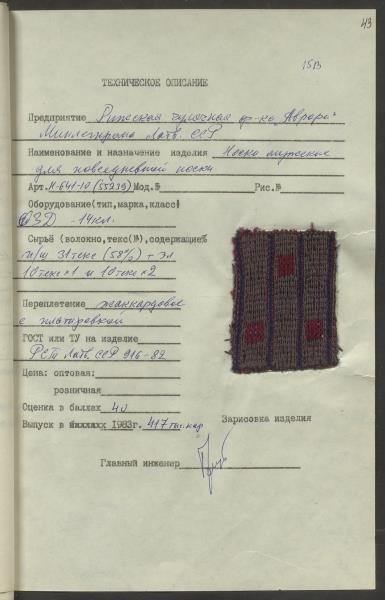 43
15В
ТЕХНИЧЕСКОЕ ОПИСАНИЕ
Предприятие Рижская чулочная ф-ка „Аврора"
Минлегпрома Латв. ССР
Наименование и назначение изделия Носки мужские
для повседневной носки
Арт. Мод.№ Рис.№
Оборудование(тип,марка,класс)
ОЗД - 14 кл.
Сырьё (волокно,текс(№),содержащие%
п/ш 31 текс (58%) + эл
10 текс х1 и 10 текс х2
Переплетение жаккардовое
с платировкой
ГОСТ или ТУ на изделие
РСТ Латв. ССР 916-82
Цена: оптовая:
розничная
Оценка в баллах 40
Выпуск в 1983г. 417 тыс. пар
Зарисовка изделия
Главный инженер